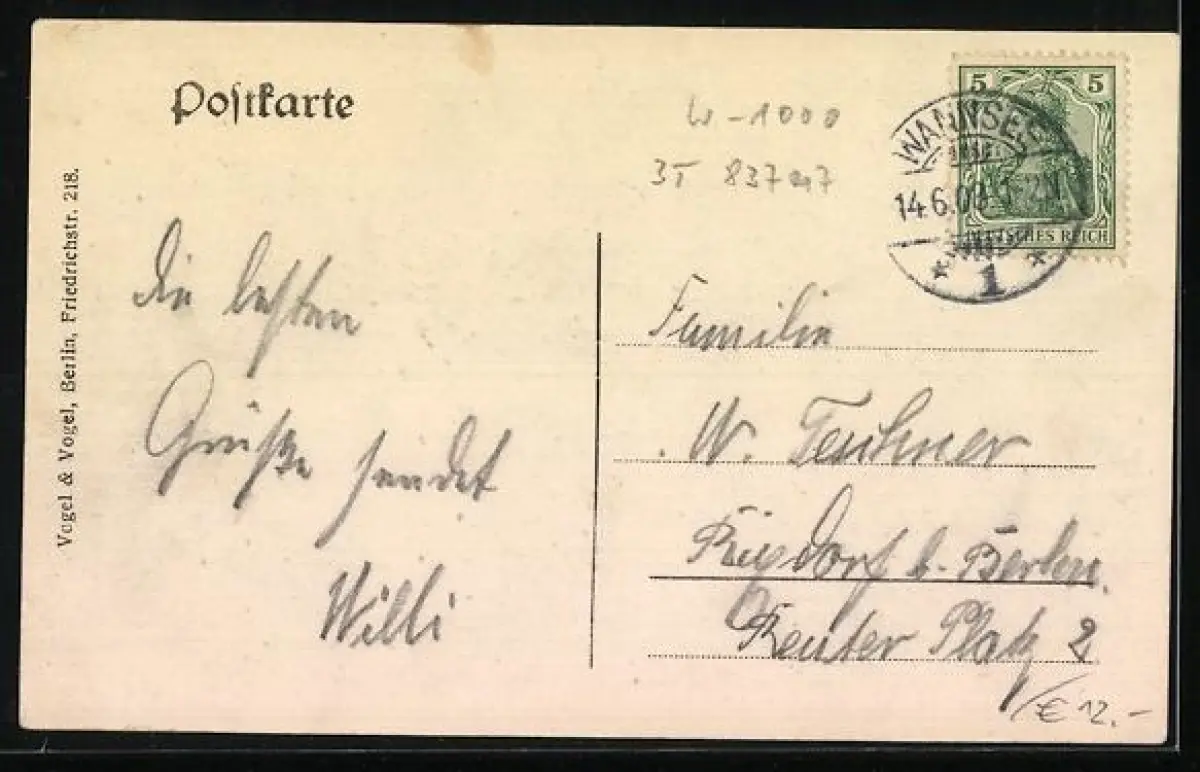 Postkarte
W-1000
5 5
WANNSEE
14.6.09
DEUTSCHES REICH
* 1 *
Vogel & Vogel, Berlin, Friedrichstr. 218.
die besten
Grüße sendet
Willi
Familie
W. Teuchner
Rixdorf b. Berlin.
Reuter Platz 2
€ 12.-